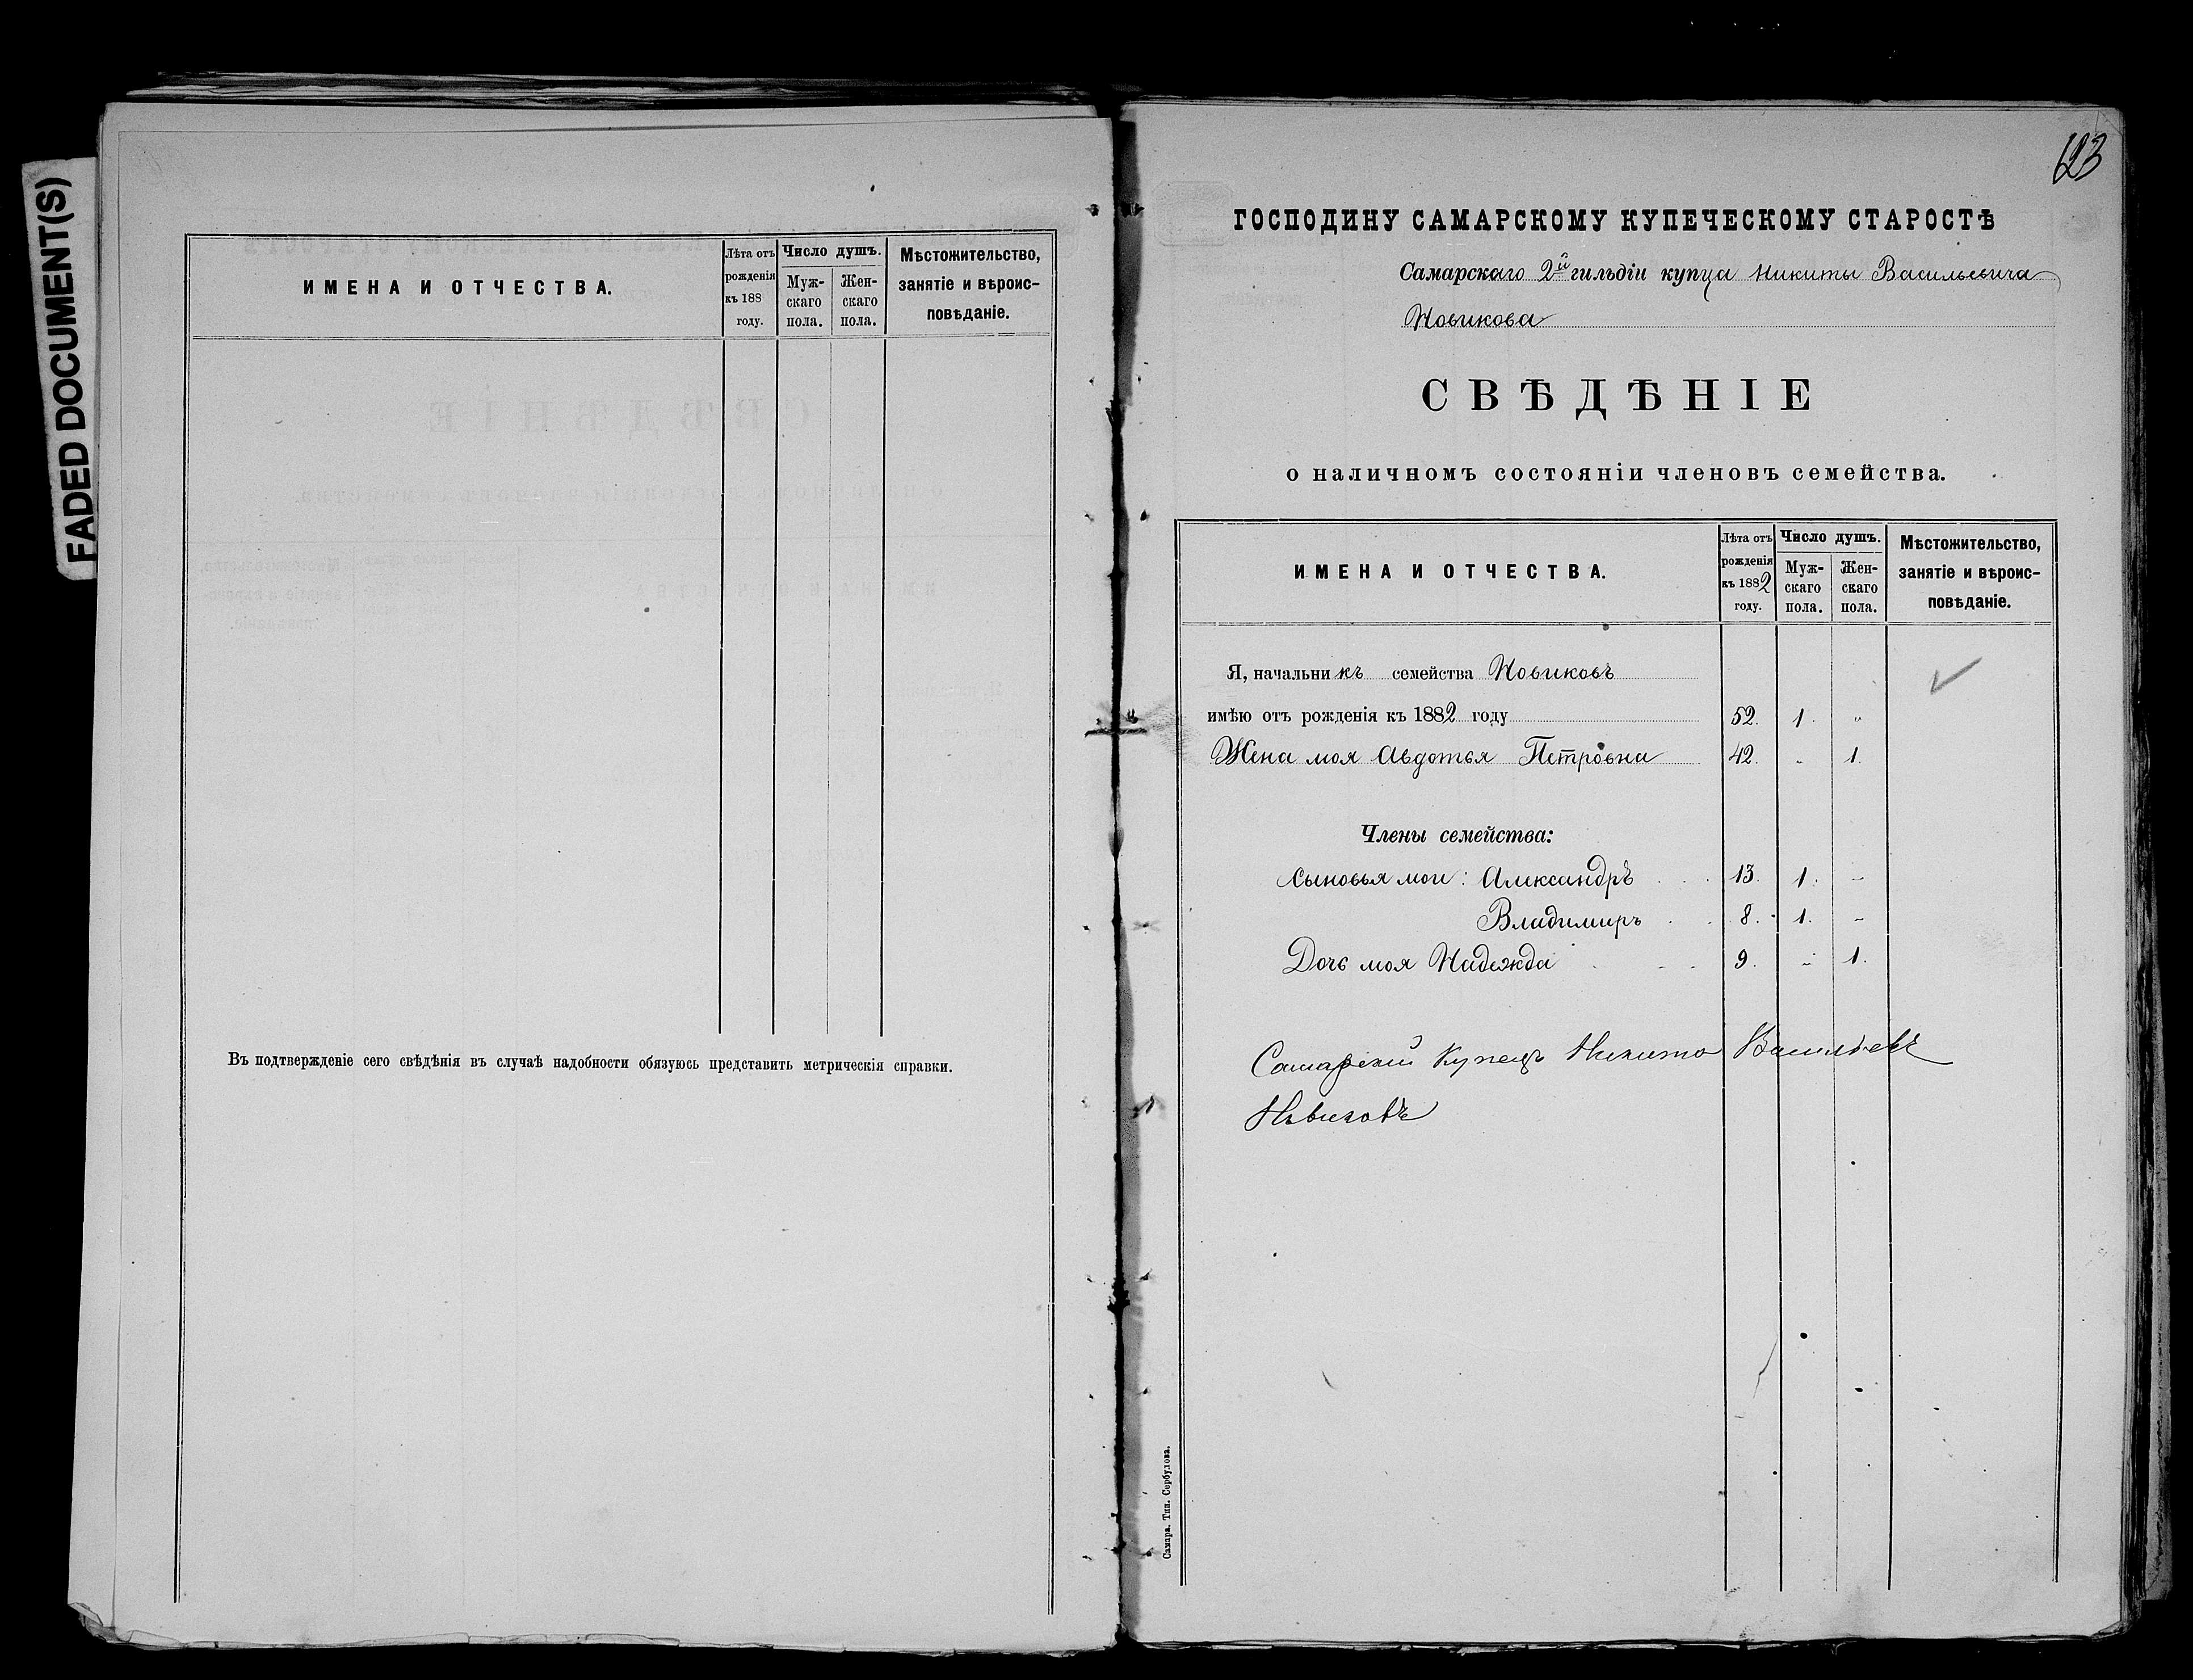 FADED DOCUMENT(S)
ИМЕНА И ОТЧЕСТВА.
Лѣта отъ рожденія къ 188 году.
Число душъ.
Мужскаго пола.
Женскаго пола.
Мѣстожительство, занятіе и вѣроисповѣданіе.
Въ подтвержденіе сего свѣдѣнія въ случаѣ надобности обязуюсь представить метрическія справки.
123
ГОСПОДИНУ САМАРСКОМУ КУПЕЧЕСКОМУ СТАРОСТѢ
Самарскаго 2й гильдіи купца Никиты Васильевича
Новикова
СВѢДѢНІЕ
о наличномъ состояніи членовъ семейства.
ИМЕНА И ОТЧЕСТВА.
Лѣта отъ рожденія къ 1882 году.
Число душъ.
Мужскаго пола.
Женскаго пола.
Мѣстожительство, занятіе и вѣроисповѣданіе.
Я, начальникъ семейства Новиковъ
имѣю отъ рожденія къ 1882 году 52. 1. "
Жена моя Авдотья Петровна 42. " 1.
Члены семейства:
Сыновья мои: Александръ 13. 1. "
Владимиръ 8. 1. "
Дочь моя Надежда 9. " 1.
Самарскій Купецъ Никита Васильевъ
Новиковъ
Самара. Тип. Сербулова.